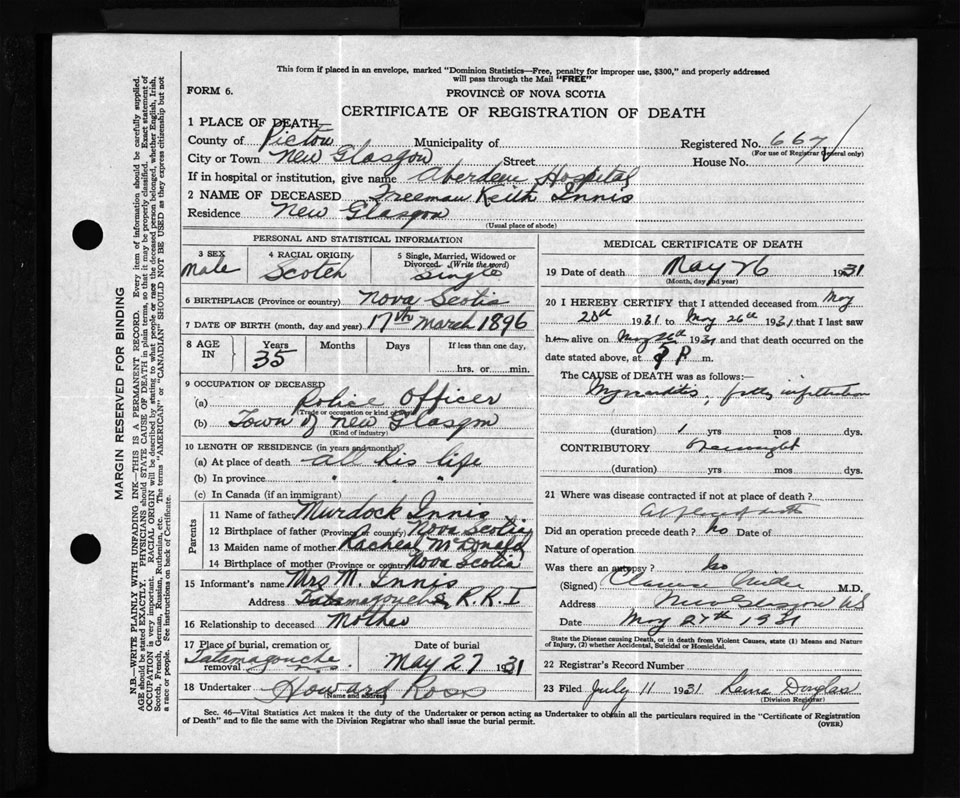 This form if placed in an envelope, marked "Dominion Statistics—Free, penalty for improper use, $300," and properly addressed
will pass through the Mail "FREE"
FORM 6.
PROVINCE OF NOVA SCOTIA
CERTIFICATE OF REGISTRATION OF DEATH
1 PLACE OF DEATH
County of Pictou Municipality of Registered No. 667
(For use of Registrar General only)
City or Town New Glasgow Street House No.
If in hospital or institution, give name Aberdeen Hospital
2 NAME OF DECEASED Freeman Keith Innis
Residence New Glasgow
(Usual place of abode)
PERSONAL AND STATISTICAL INFORMATION
3 SEX
Male
4 RACIAL ORIGIN
Scotch
5 Single, Married, Widowed or
Divorced (Write the word)
Single
6 BIRTHPLACE (Province or country) Nova Scotia
7 DATE OF BIRTH (month, day and year) 17th March 1896
8 AGE IN
Years Months Days If less than one day,
35
hrs. or min.
9 OCCUPATION OF DECEASED
(a) Police Officer
(Trade or occupation or kind of work)
(b) Town of New Glasgow
(Kind of industry)
10 LENGTH OF RESIDENCE (in years and months)
(a) At place of death all his life
(b) In province " " "
(c) In Canada (if an immigrant)
Parents
11 Name of father Murdock Innis
12 Birthplace of father (Province or country) Nova Scotia
13 Maiden name of mother Rachael McDonald
14 Birthplace of mother (Province or country) Nova Scotia
15 Informant's name Mrs M. Innis
Address Tatamagouche R.R.1
16 Relationship to deceased Mother
17 Place of burial, cremation or removal Date of burial
Tatamagouche N.S. May 27 1931
18 Undertaker Howard Ross
(Name and address)
MEDICAL CERTIFICATE OF DEATH
19 Date of death May 26 1931
(Month, day and year)
20 I HEREBY CERTIFY that I attended deceased from May
1931 to May 26th 1931 that I last saw
h alive on May 26th 1931 and that death occurred on the
date stated above, at P. m.
The CAUSE of DEATH was as follows:—
Myocarditis, fatty infiltration
(duration) 1 yrs mos dys.
CONTRIBUTORY Overweight
(duration) yrs mos dys.
21 Where was disease contracted if not at place of death?
Did an operation precede death? No Date of
Nature of operation
Was there an autopsy? No
(Signed) Clarence Miller M.D.
Address New Glasgow NS
Date May 27th 1931
State the Disease causing Death, or in death from Violent Causes, state (1) Means and Nature
of Injury, (2) whether Accidental, Suicidal or Homicidal.
22 Registrar's Record Number
23 Filed July 11 1931 Douglas
(Division Registrar)
Sec. 46—Vital Statistics Act makes it the duty of the Undertaker or person acting as Undertaker to obtain all the particulars required in the "Certificate of Registration
of Death" and to file the same with the Division Registrar who shall issue the burial permit.
(OVER)
MARGIN RESERVED FOR BINDING
N.B.—WRITE PLAINLY WITH UNFADING INK—THIS IS A PERMANENT RECORD. Every item of information should be carefully supplied.
AGE should be stated EXACTLY. PHYSICIANS should STATE CAUSE OF DEATH in plain terms, so that it may be properly classified. Exact statement of
OCCUPATION is very important. RACIAL ORIGIN will be described by stating to what people or race the deceased person belonged, whether English, Irish,
Scotch, French, German, Russian, Ruthenian, etc. The terms "AMERICAN" or "CANADIAN" SHOULD NOT BE USED as they express citizenship but not
a race or people. See instructions on back of Certificate.